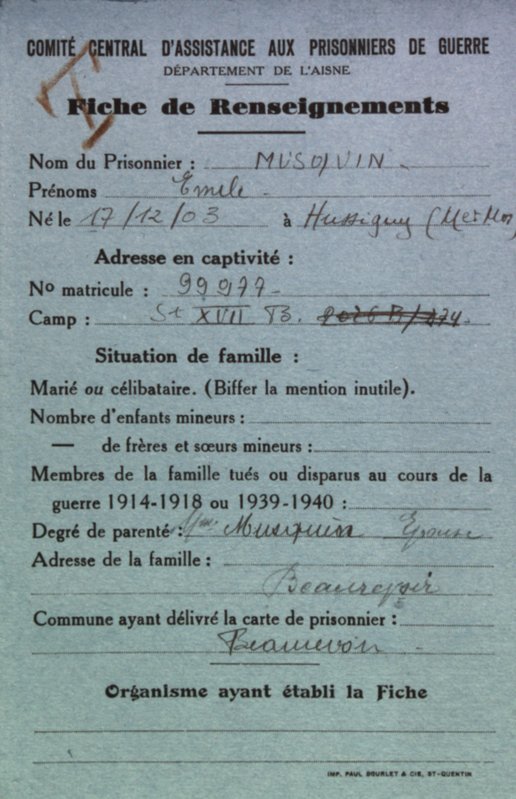 COMITÉ CENTRAL D'ASSISTANCE AUX PRISONNIERS DE GUERRE
DÉPARTEMENT DE L'AISNE
Fiche de Renseignements
Nom du Prisonnier : MUSQUIN
Prénoms Emile
Né le 17/12/03 à Hussigny (Met Mos)
Adresse en captivité :
No matricule : 99977
Camp : St XVII B.
Situation de famille :
Marié ou célibataire. (Biffer la mention inutile).
Nombre d'enfants mineurs :
— de frères et sœurs mineurs :
Membres de la famille tués ou disparus au cours de la
guerre 1914-1918 ou 1939-1940 :
Degré de parenté : Mme Musquin Epouse
Adresse de la famille :
Beaurevoir
Commune ayant délivré la carte de prisonnier :
Beaurevoir
Organisme ayant établi la Fiche
IMP. PAUL BOURLET & CIE, ST-QUENTIN